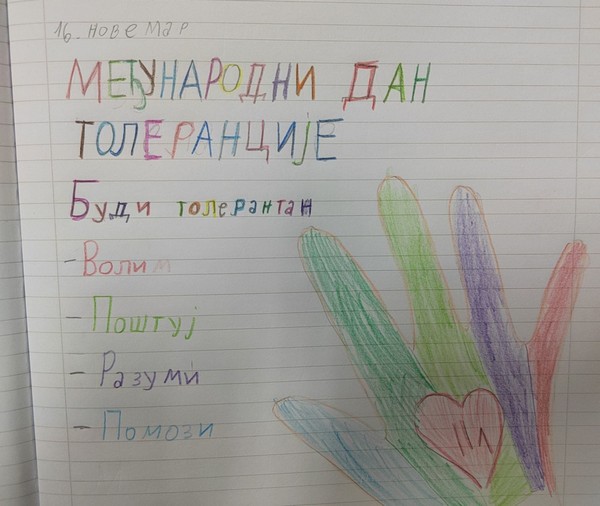 16. новемар
МЕЂУНАРОДНИ ДАН
ТОЛЕРАНЦИЈЕ
Буди толерантан
- Волим
- Поштуј
- Разуми
- Помози